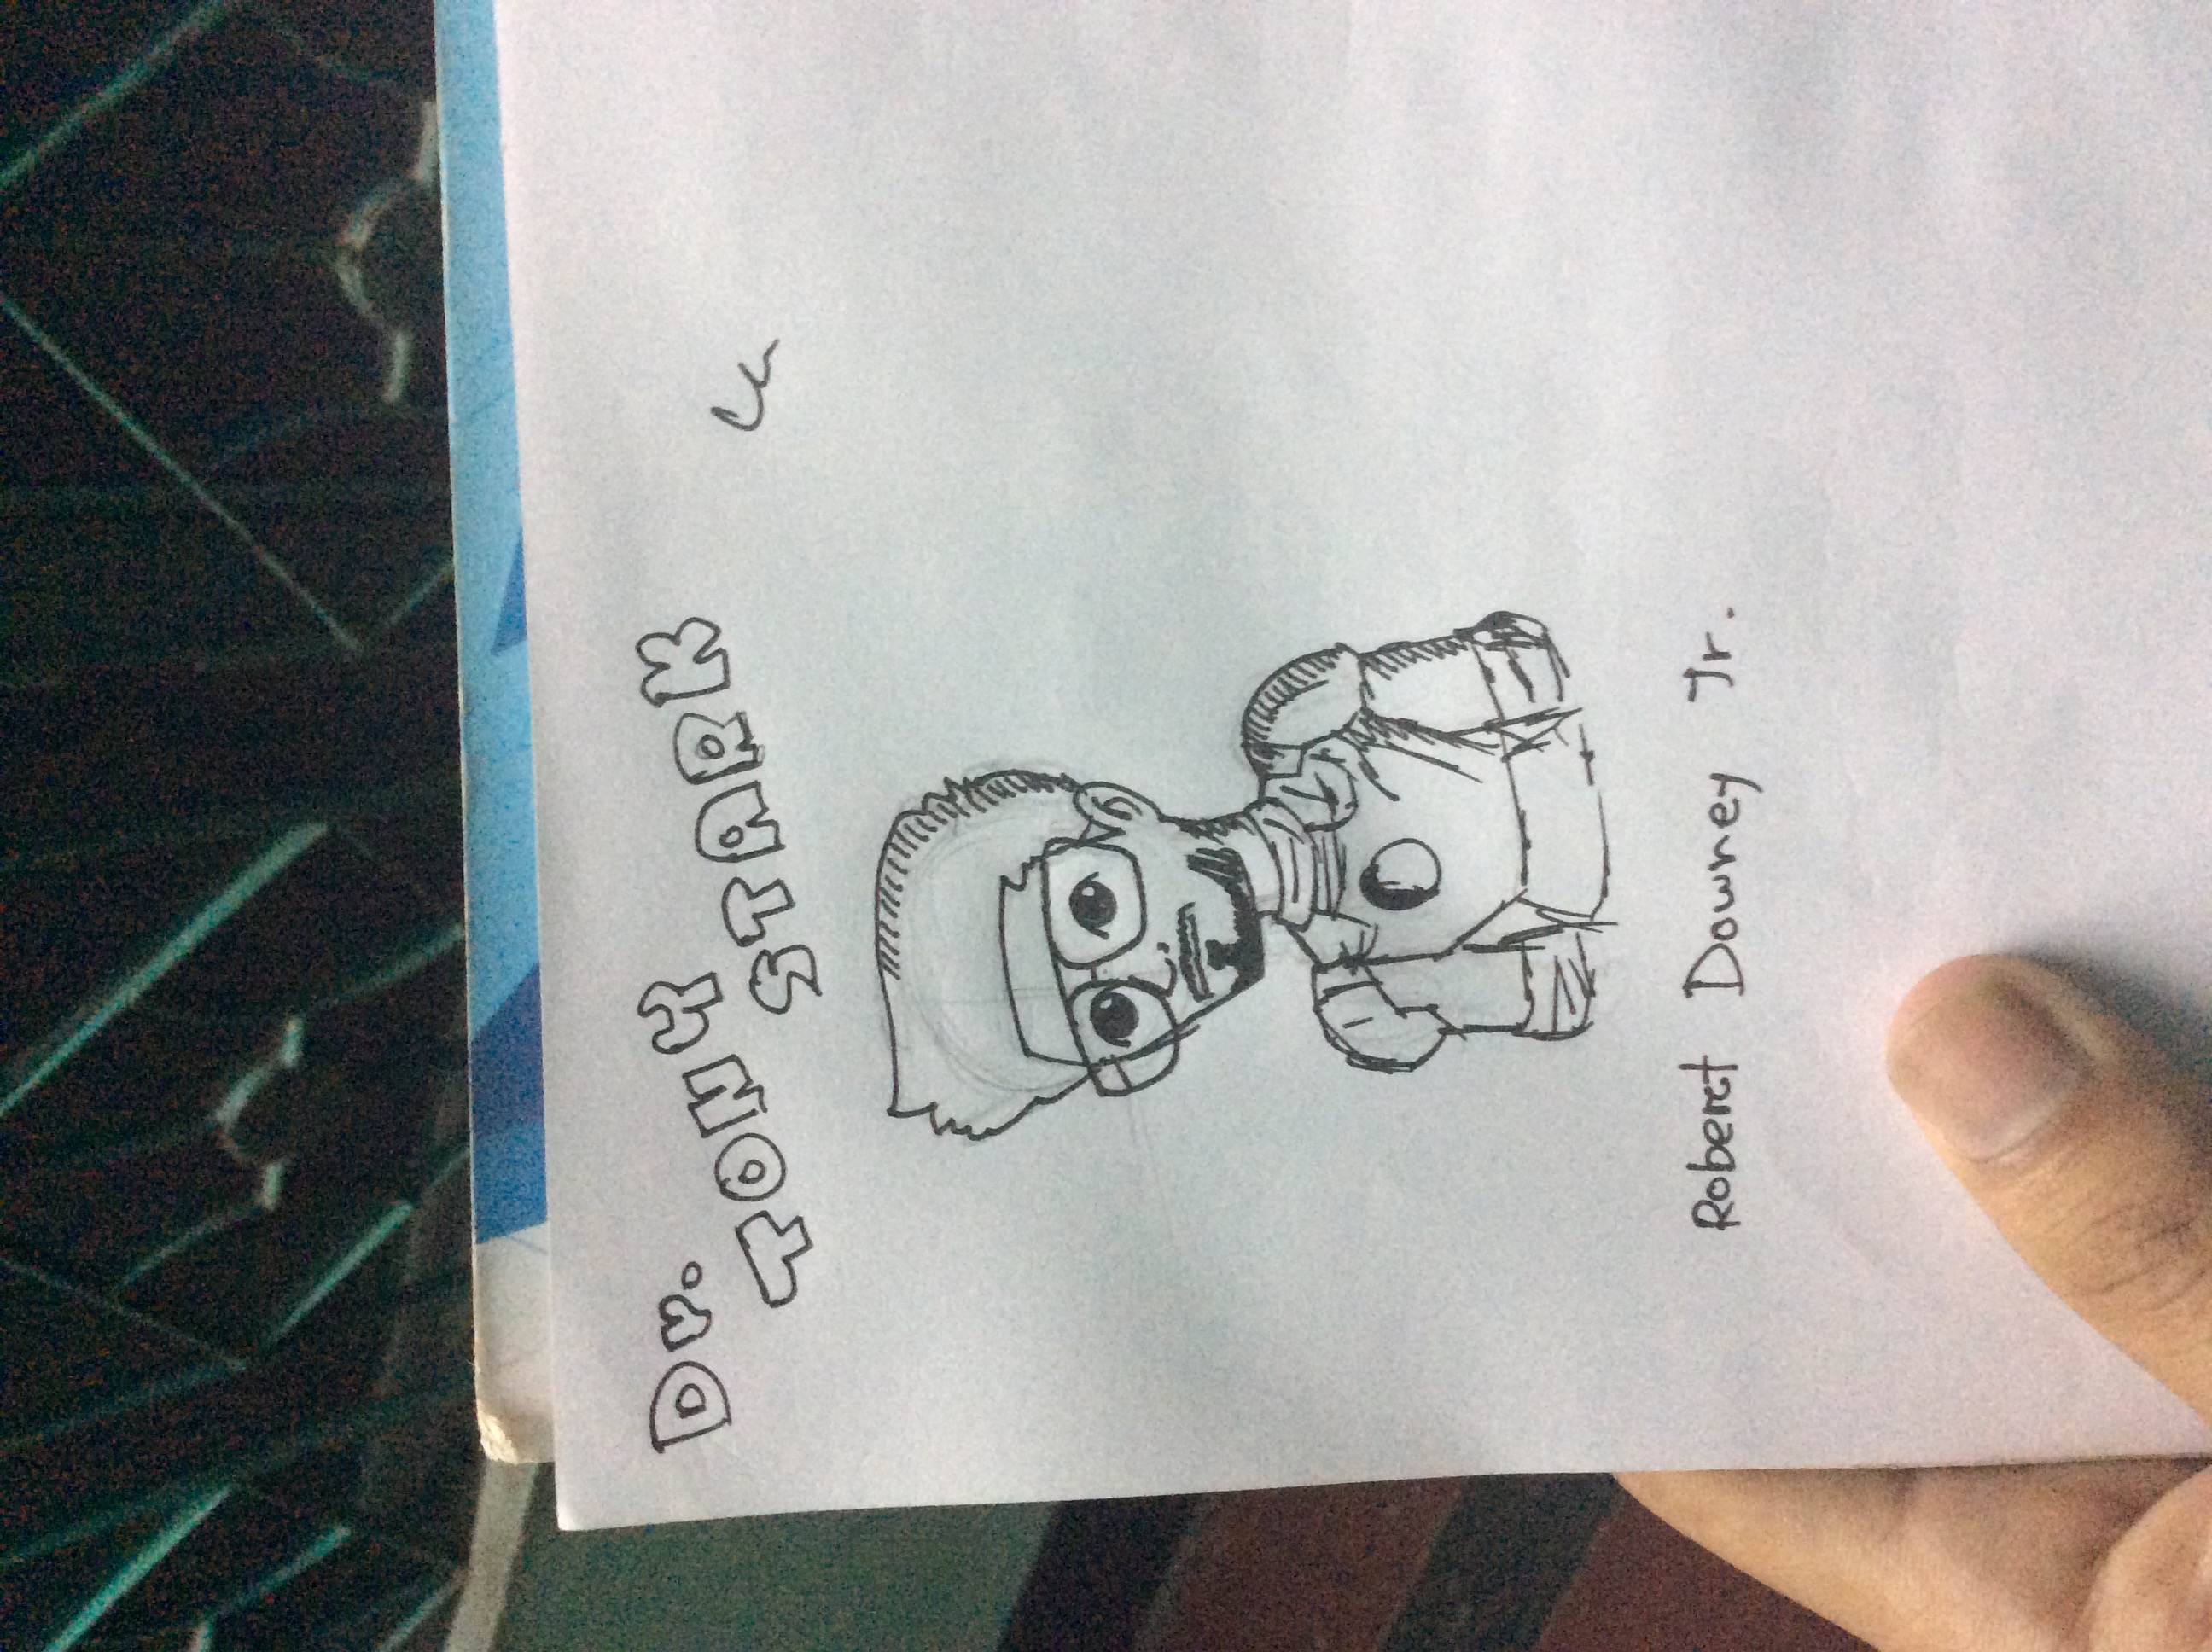 Dr.
TONY
STARK
Roberct Downey Jr.